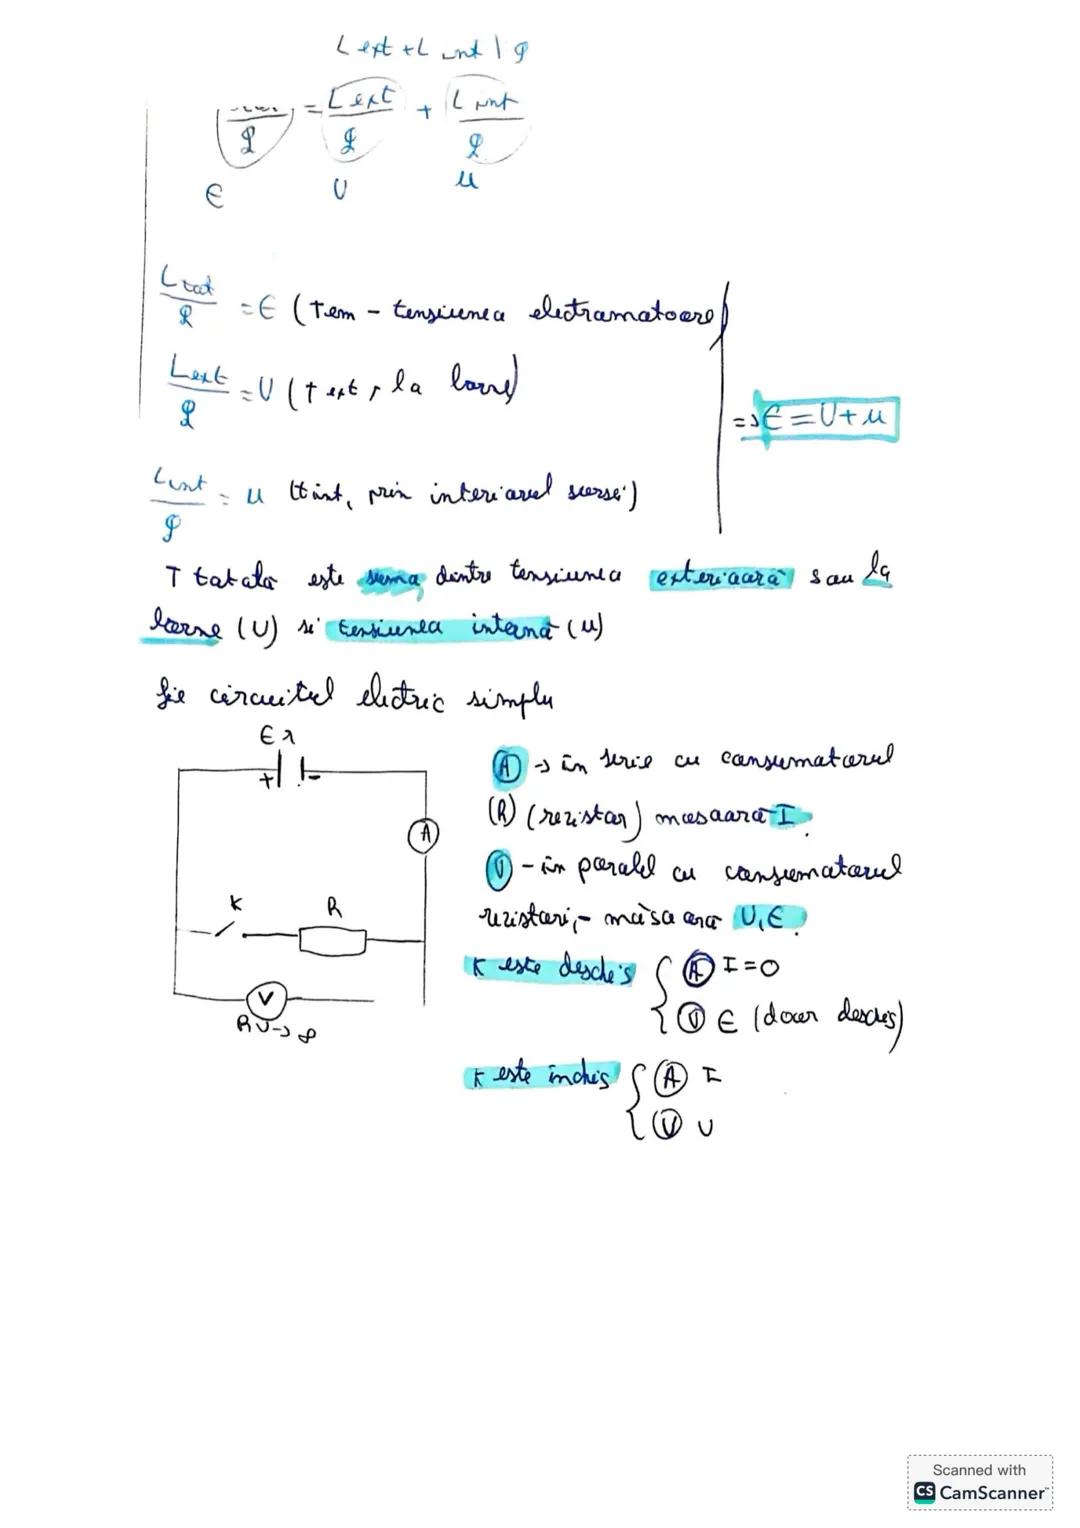 L ext + L int | q
= L ext / q + L int / q
Є U u
L tot / q = Є (Tem - tensiunea electromotoare)
L ext / q = U (t ext, la borne)
=> Є = U + u
L int / q = u (t int, prin interiorul sursei)
T totala este suma dintre tensiunea exterioară sau la
borne (U) si tensiunea internă (u)
fie circuitul electric simplu
Є r
+ -
A
K R
V
RV -> ∞
A -> în serie cu consumatorul
(R) (rezistor) măsoară I.
V - în paralel cu consumatorul
rezistori, - măsoară U, Є.
K este deschis { A I = 0
V Є (doar deschis)
K este închis { A I
V U
Scanned with
CS CamScanner™